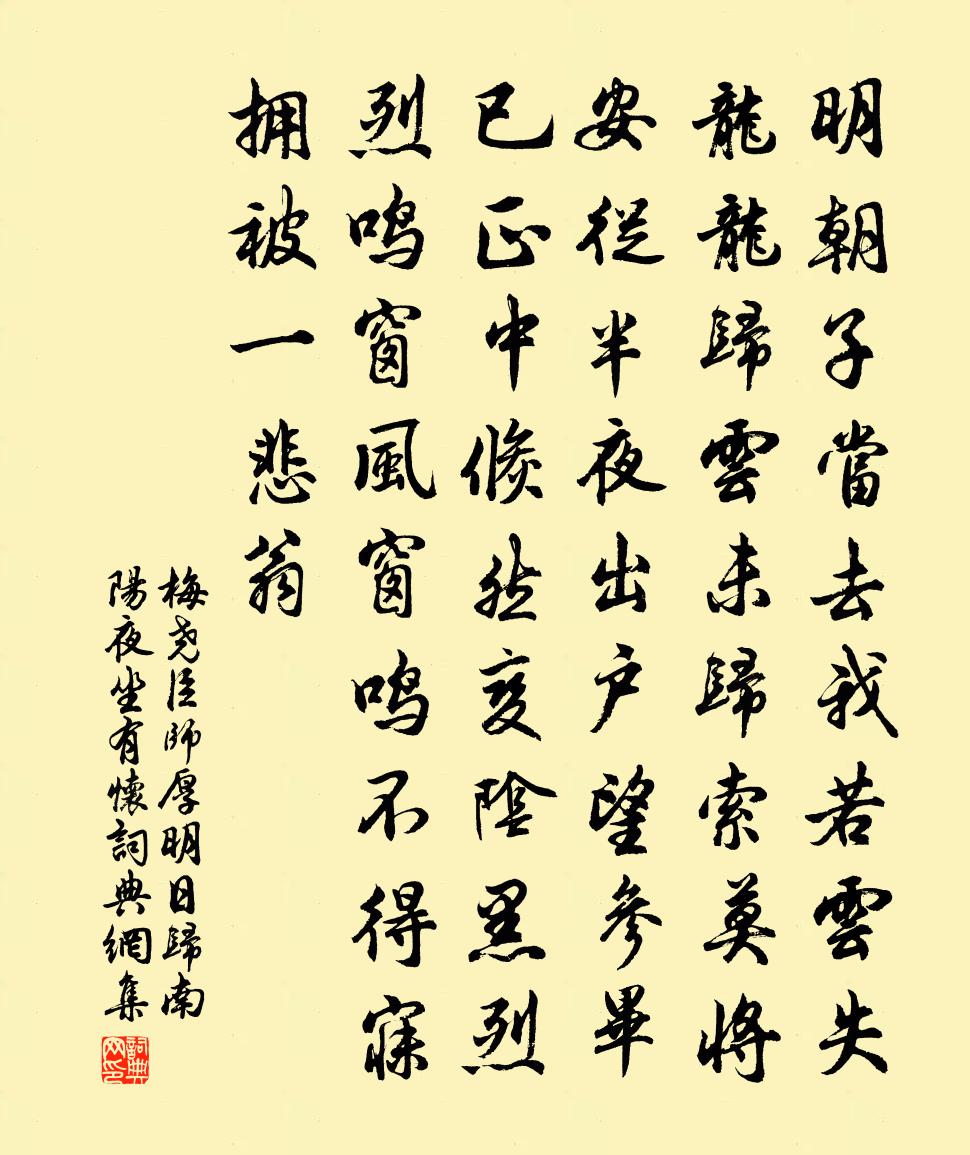 明朝子當去我若雲失
龍龍歸雲未歸索莫將
安從半夜出户望參畢
已正中倏然变陰黑烈
烈鳴窗風窗鳴不得寐
拥被一悲翁
梅尧臣師厚明日歸南
陽夜坐有懷詞典網集
詞典
网印